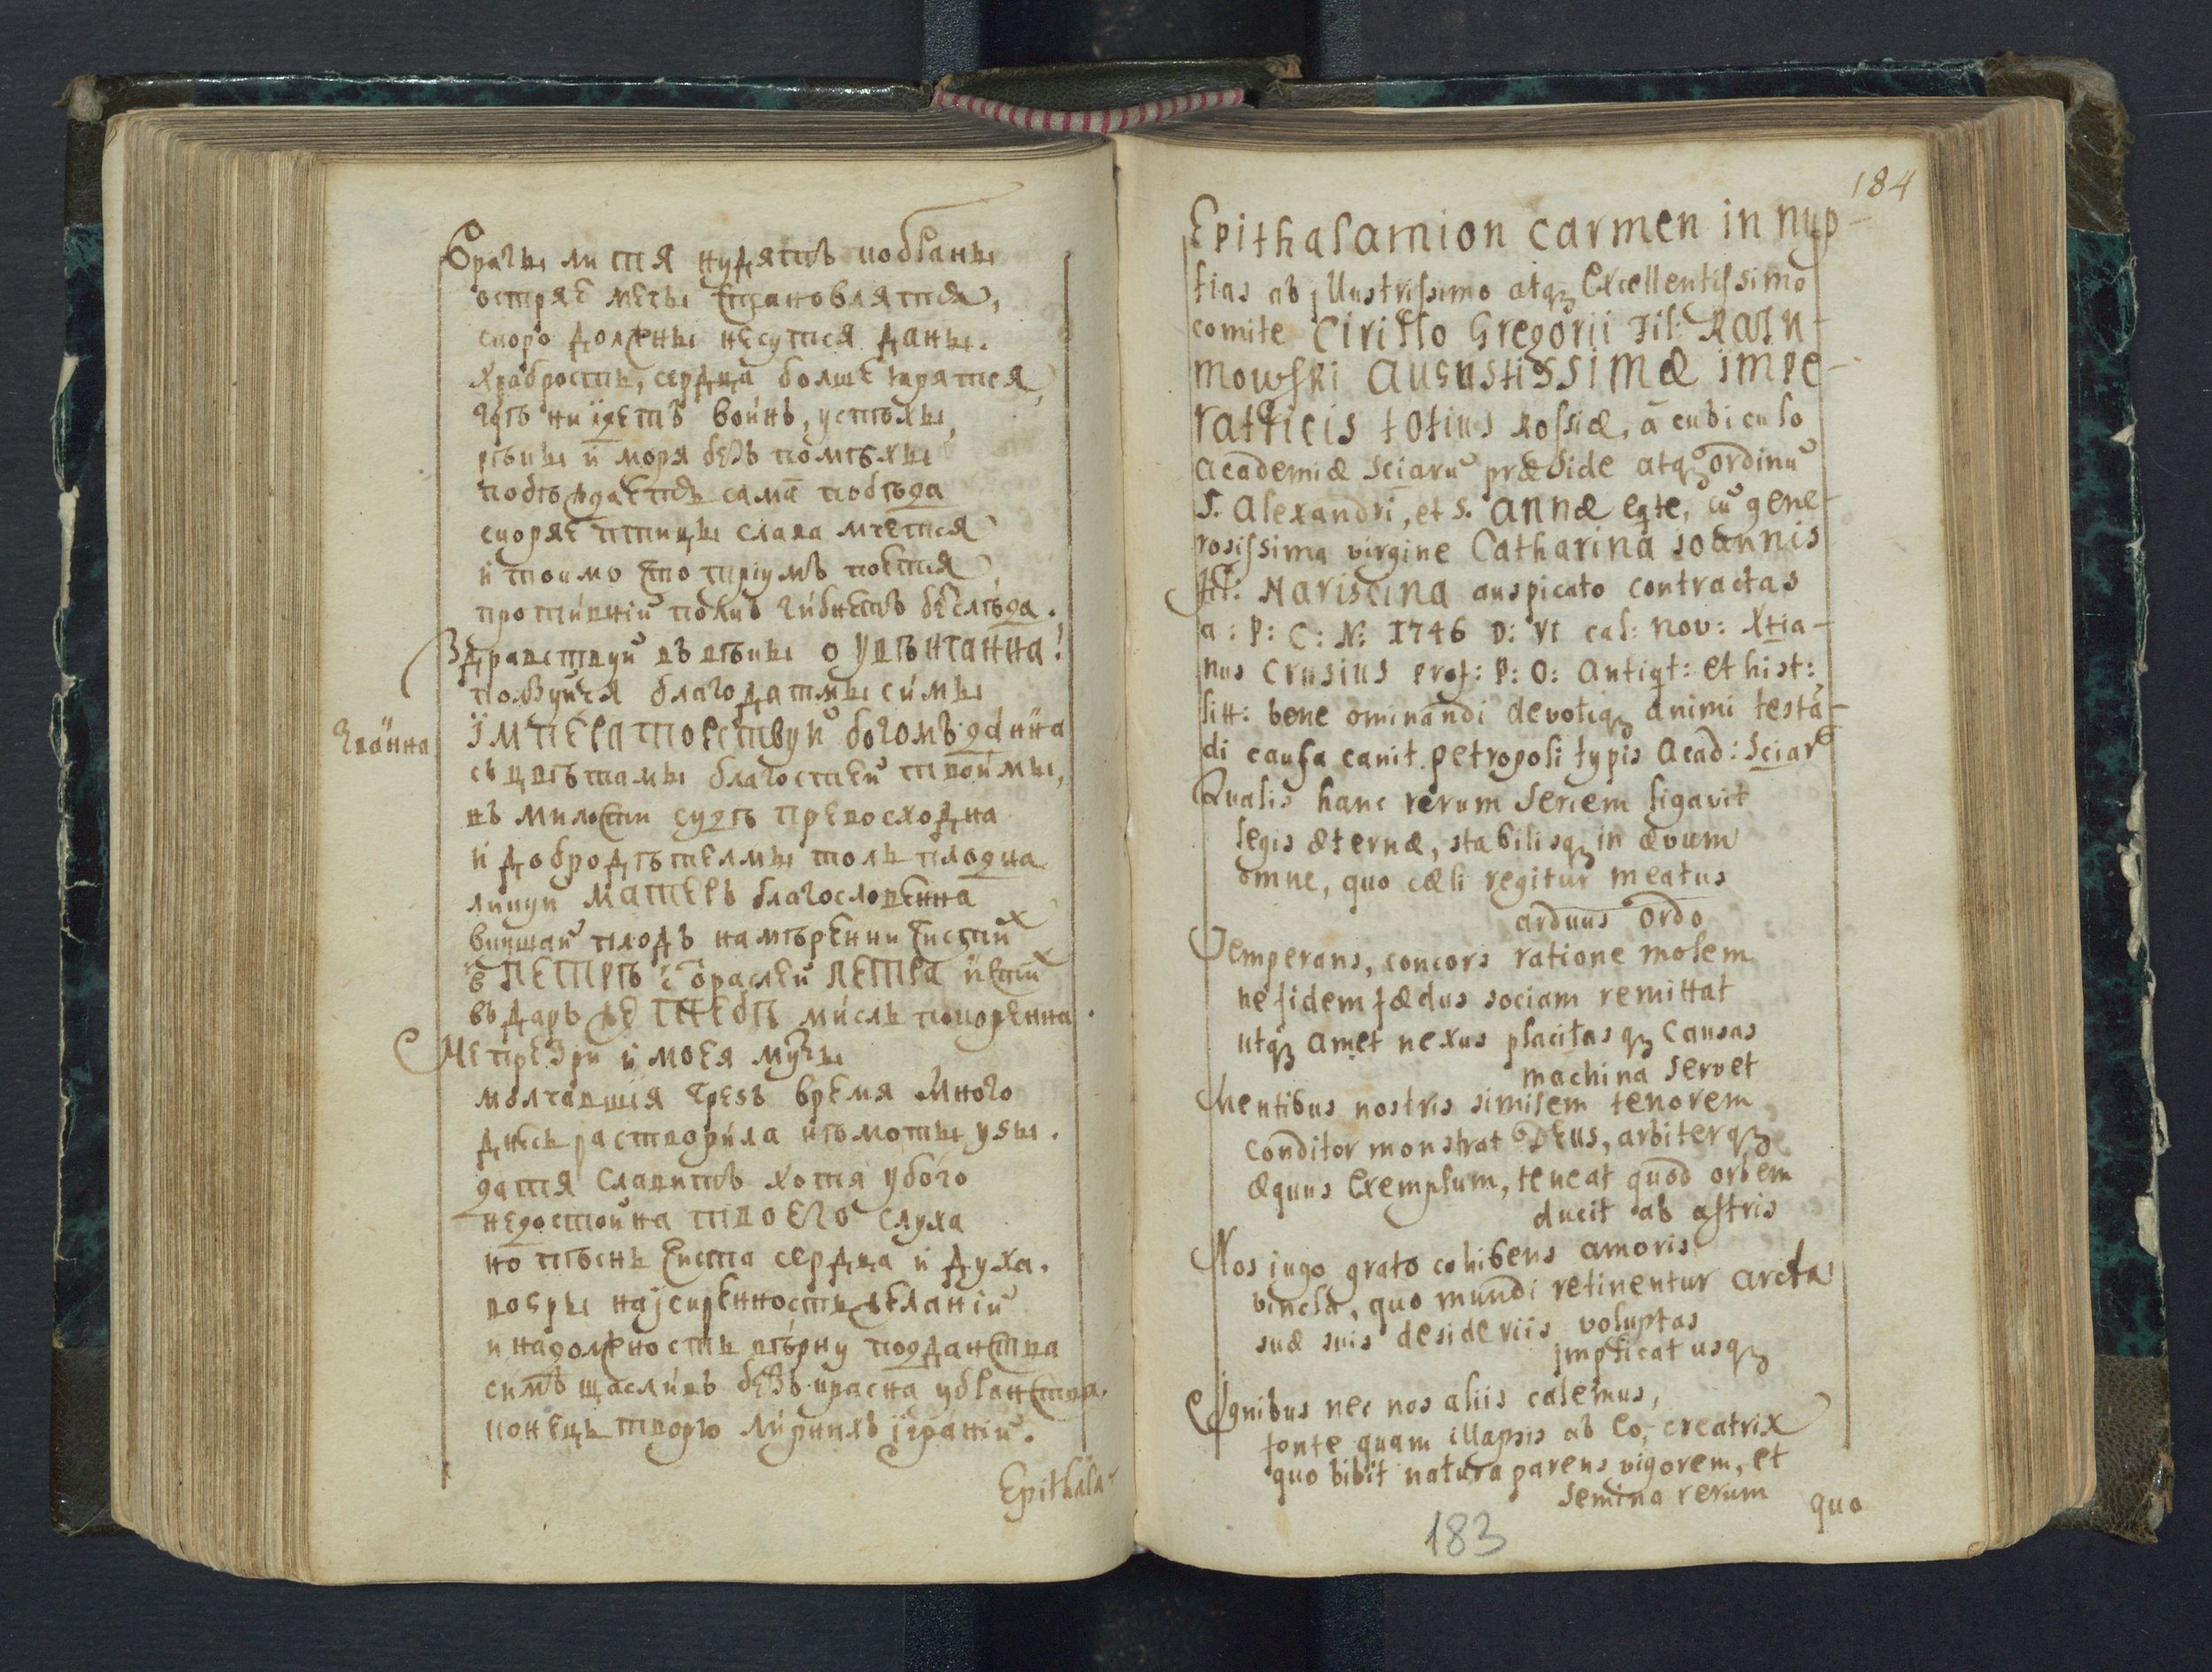 Врагы ли тя нудятъ побраны
остряе мечы становлятся,
скоро должны несутся даны.
Храбрость, сердца болше юрятся,
гдѣ ни идетъ воинъ, успѣхы,
рѣкы и моря безъ помѣхы
побѣждается сама побѣда
скоряе птицы слава мчется
и токмо то тріумъ поется
противній покивъ гибнетъ беслѣда.
Здравствуй въ вѣкы о увѣнчанна!
ползуйся благодатмы симы
Імператорствуй богомъ данна
Чванна
съ цвѣтамы благостей твоимы,
въ милости судѣ превосходна
и добродѣтелмы толь плодна
ликуй матерь благословенна
вкушай плодъ намѣреній чистых
въ Петрѣ с отраслей Петра истых
въ даръ же тебѣ мисль покоренна.
Не презри и моея музы
молчавшія чрезъ время много
днесь растворила нѣмоты узы.
датя славитъ хотя убого
недостойна твоего слуха
но пѣснь чиста сердца и духа.
воззры наіскренность желаній
и надолжность вѣрну подданства
симъ щасливъ безъ красна убранства.
конецъ творю лирнихъ іграній.
Epithala-
184
Epithalamion carmen in nup-
tias ab illustrissimo atq3 Excellentissimo
comite Cirillo Gregorii Fil: Razu-
mowski augustissimæ impe-
ratricis totius Rossiæ, a cubiculo
academiæ Sciarū præside atq3 ordinū
S. Alexandri, et S. annæ eqte, cū gene-
rosissima virgine Catharina Ioannis
Fil: Nariscina auspicato contractas
a: P: C: N: 1746 D: VI cal: Nov: Xtia-
nus Crusius prof: P: O: Antiqt: et hist:
litt: bene ominandi devotiq3 animi testā-
di causa canit. petropoli typis Acad: Sciar
Qualis hanc rerum Seriem ligavit
legis æternæ, stabilisq3 in ævum
omne, quo cæli regitur meatus
arduus Ordo
Temperans, concors ratione molem
ne fidem fædus sociam remittat
utq3 amet nexus placitasq3 causas
machina servet
Mentibus nostris similem tenorem
Conditor monstrat Deus, arbiterq3
Æquus Exemplum, teneat quod orbem
ducit ab astris
Nos jugo grato cohibens amoris
vincla, quo mundi retinentur arcta
suæ suis desideriis voluptas
implicat usq3
Ignibus nec nos aliis calemus,
fonte quam illapsis ab Eo, creatrix
quo bibit natura parens vigorem, et
Semina rerum
quo
183